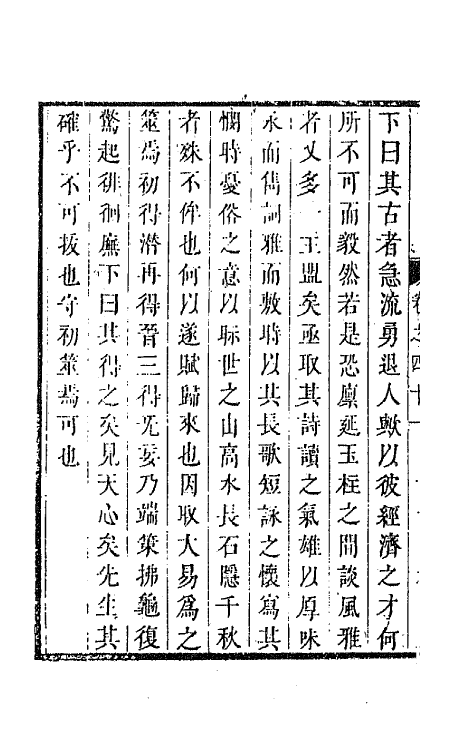 下曰其古者急流勇退人歟以彼經濟之才何
所不可而毅然若是恐廪延玉柱之間談風雅
者又多一主盟矣亟取其詩讀之氣雄以厚味
永而雋詞雅而敷時以其長歌短詠之懷寫其
憫時憂俗之意以眎世之山高水長石隱千秋
者殊不侔也何以遂賦歸來也因取大易爲之
筮焉初得潛再得晉三得无妄乃端策拂龜復
驚起徘徊廡下曰其得之矣見天心矣先生其
確乎不可拔也守初筮焉可也
卷之四十一